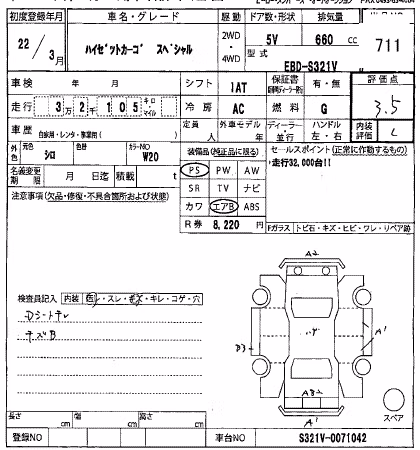 初度登録年月 車名・グレード 駆動 ドア数・形状 排気量
22/3月 ハイゼットカーゴ スペシャル 2WD・4WD 5V 660 cc 711
型式 EBD-S321V
車検 年 月 シフト 1AT 保証書 有・無 評価点
走行 3万2千105キロ・マイル 冷房 AC 燃料 G 3.5
車歴 自家用・レンタ・事業用( ) 定員 人 外車モデル 年 ディーラー・並行 ハンドル 左・右 内装評価 C
外色 元色 シロ 色替 カラーNO W20 装備品(純正品に限る) セールスポイント(正常に作動するもの)
名義変更期限 月 日迄 積載 t PS PW AW ・走行32,000台!!
注意事項(欠品・修復・不具合箇所および状態) SR TV ナビ
カワ エアB ABS
R券 8,220 円 Fガラス トビ石・キズ・ヒビ・ワレ・リペア跡
A2
検査員記入 内装 ・スレ・ ・キレ・コゲ・穴
Dシートキレ
キズB
A1
A1
スペア
長さ cm 幅 cm 高さ cm
登録NO 車台NO S321V-0071042